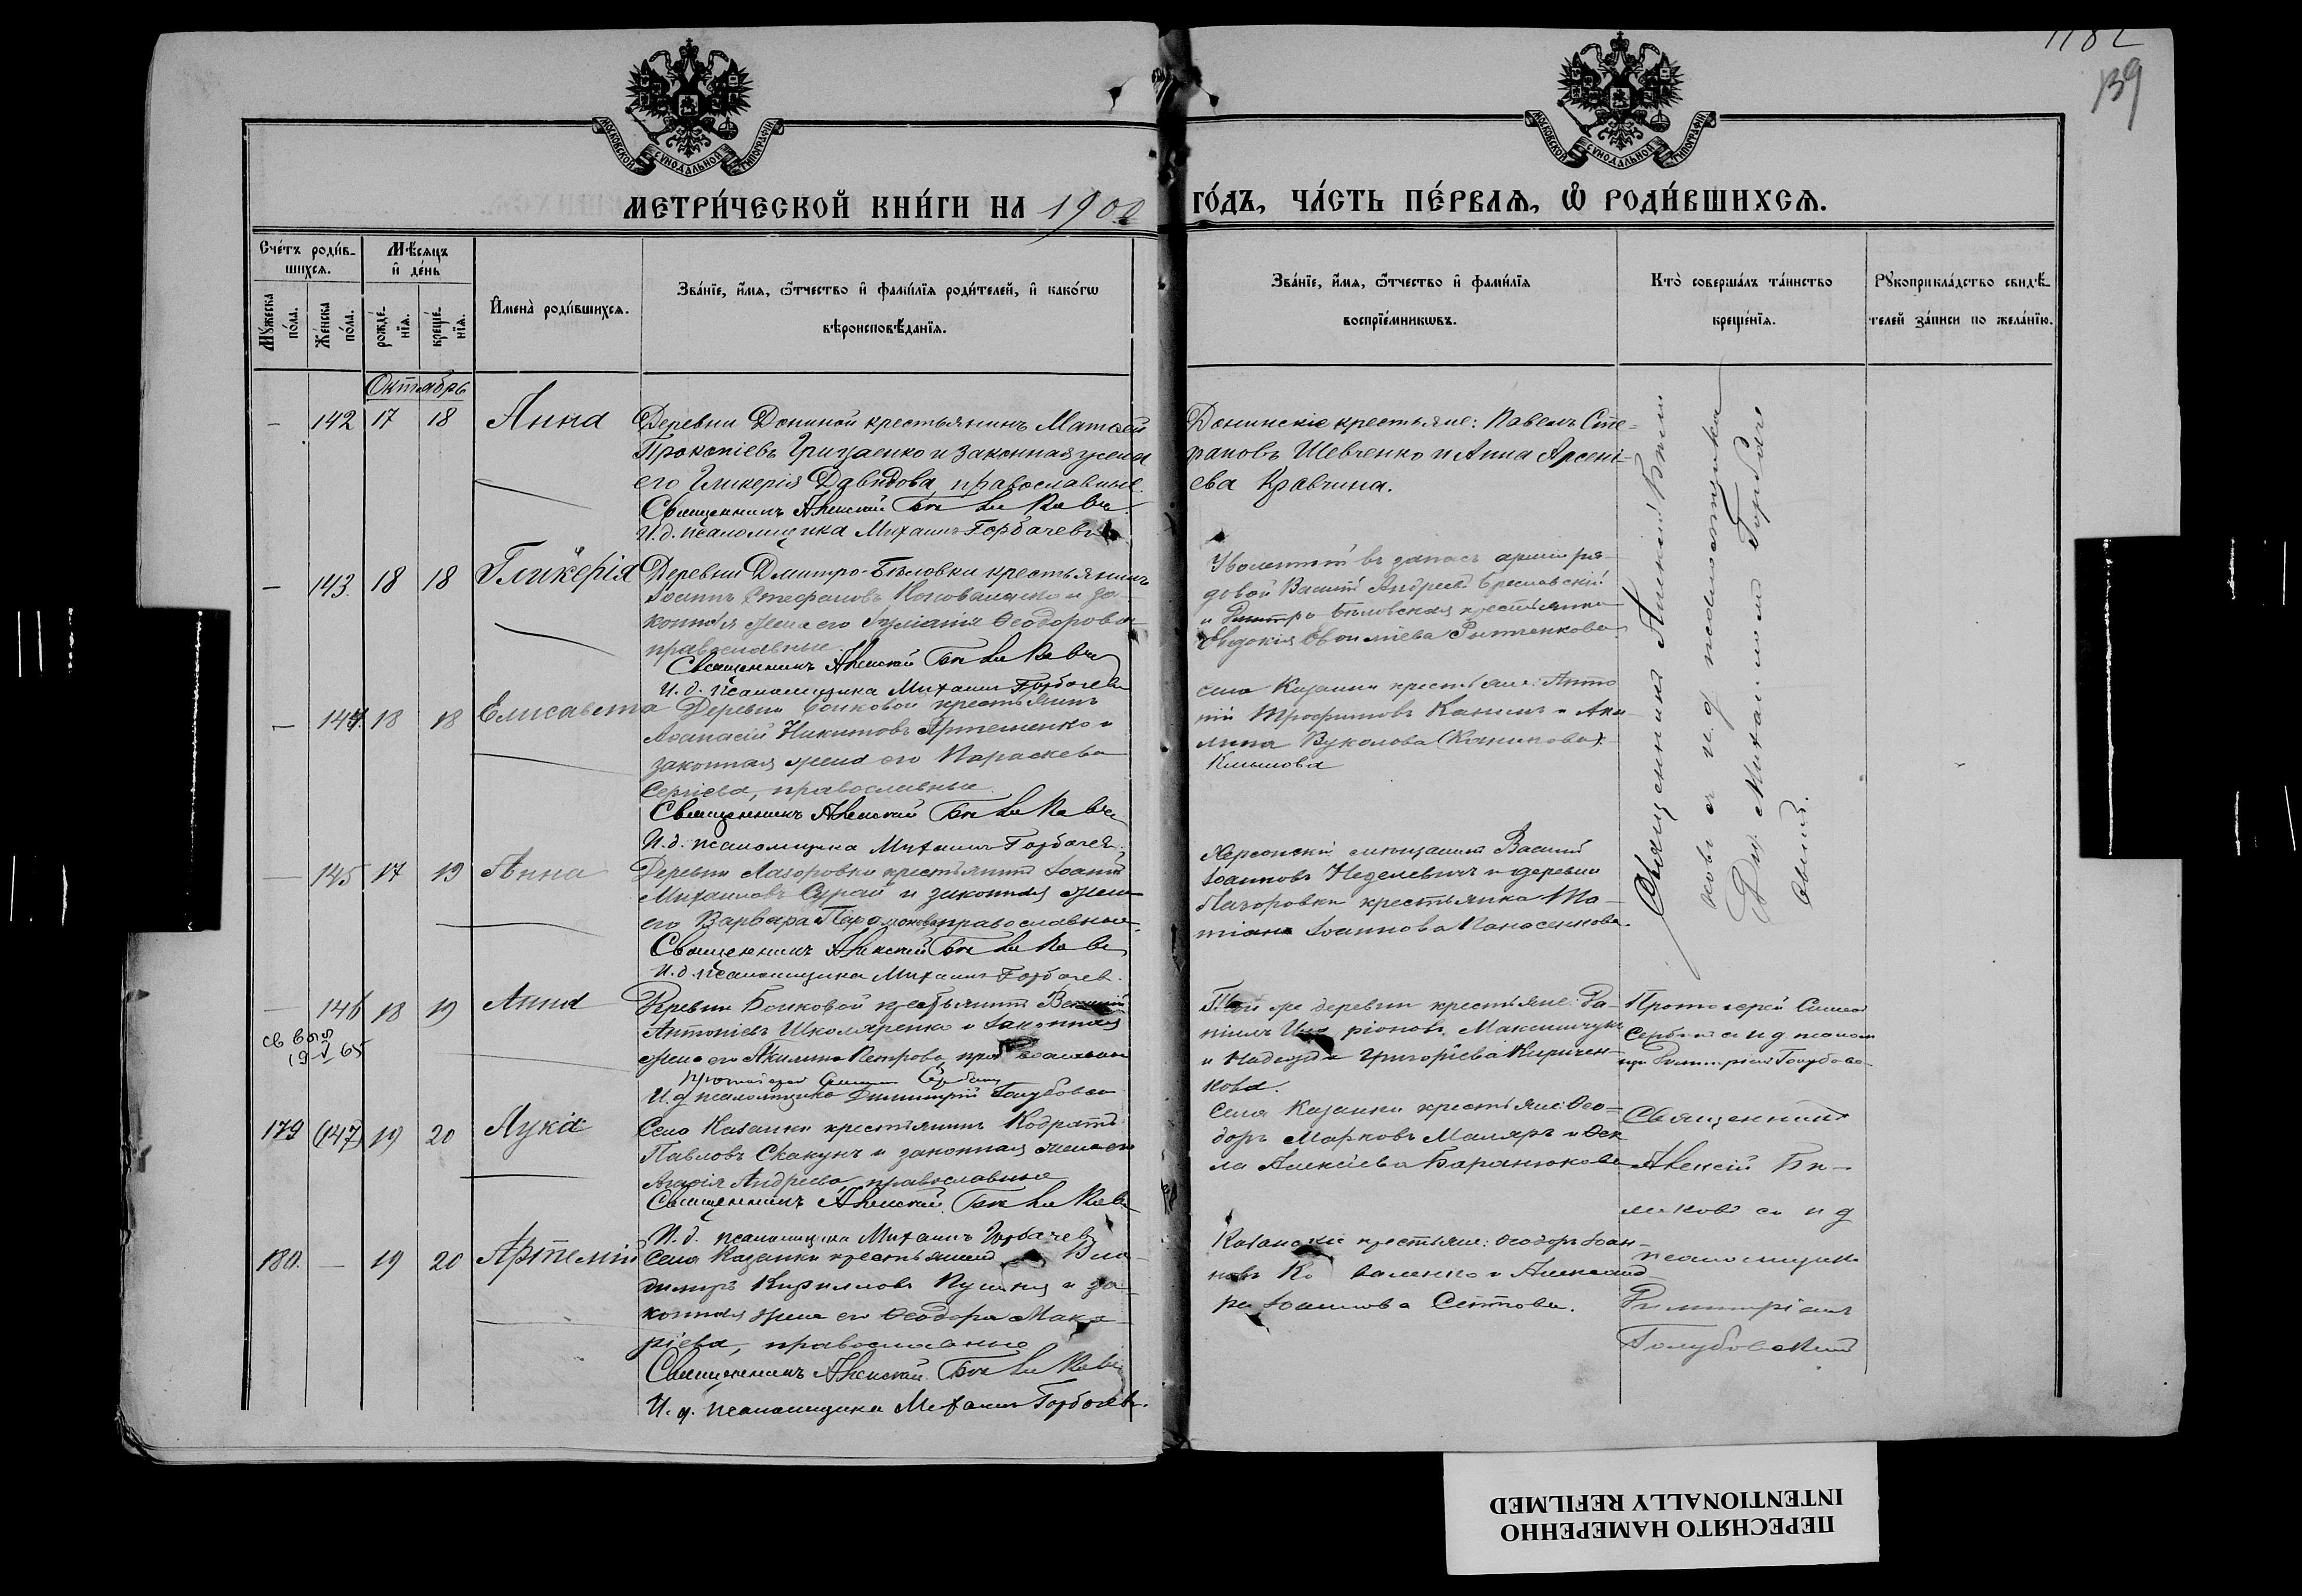 1182
139
МОСКОВСКОЙ СѴНОДАЛЬНОЙ ТИПОГРАФІИ
МОСКОВСКОЙ СѴНОДАЛЬНОЙ ТИПОГРАФІИ
МЕТРИ́ЧЕСКОЙ КНИ́ГИ НА 1902 ГО́ДЪ, ЧА́СТЬ ПЕ́РВАѦ, Ѡ҆ РОДИ́ВШИХСѦ.
Сче́тъ роди́в-
шихсѧ.
Мꙋ́жеска по́ла.
Же́нска по́ла.
Мѣ́сѧцъ и҆ де́нь
рожде́-нїѧ.
креще́-нїѧ.
И҆мена̀ роди́вшихсѧ.
Зва́нїе, и҆́мѧ, ѻ҆́тчество и҆ фами́лїѧ роди́телей, и҆ како́гѡ
вѣроисповѣ́данїѧ.
Зва́нїе, и҆́мѧ, ѻ҆́тчество и҆ фами́лїѧ
воспрїе́мникѡвъ.
Кто̀ соверша́лъ та́инство
креще́нїѧ.
Рꙋкоприкла́дство свидѣ́-
телей за́писи по жела́нїю.
Октябрь
— 142 17 18 Анна
Деревни Дониной крестьянинъ Матѳей
Прокопіевъ Грицаенко и законная жена
его Гликерія Давидова, православные.
Священникъ Алексій
И.д. псаломщика Михаилъ Горбачев
Донинскіе крестьяне: Павелъ Сте-
фановъ Шевченко и Анна Арсені-
ева Кравчина.
— 143. 18 18 Гликерія
Деревни Дмитро-Бѣловки крестьянинъ
Іоаннъ Стефановъ Коноваленко и за-
конная жена его Іуліанія Ѳеодорова
православные.
Священникъ Алексій
И.д. псаломщика Михаилъ Горбачев
Уволенный въ запасъ арміи ря-
довой Василій Андреевъ Бреславскій
и Дмитро Бѣловская крестьянка
Евдокія Евѳиміева
— 144. 18 18 Елисавета
Деревни Бонковой крестьянинъ
Аѳанасій Никитовъ Артеменко и
законная жена его Параскева
Сергіева, православные
Священникъ Алексій
И.д. псаломщика Михаилъ Горбачев
села Казанки крестьяне: Анто
ній Трофимовъ Канинъ и Аки-
лина Вуколова (Канинова).
Климова
— 145 17 19 Анна
Деревни Лазоровки крестьянинъ Іоаннъ
Михаиловъ Сурай и законная жена
его Варвара православные
Священникъ Алексій
И.д. псаломщика Михаилъ Горбачев.
Херсонскій мѣщанинъ Василій
Іоанновъ Неделевичъ и деревни
Лазоровки крестьянка Та-
тіана Іоаннова Панасенкова.
Священникъ Алексій
ковъ съ и. д. псаломщика
Михаиломъ Горбаче
вымъ.
— 146 18 19 Анна
св выд
19 V 65
Деревни Бонковой крестьянинъ Василій
Антоніевъ Школяренко и законная
жена его Акилина Петрова, православные
Протоіерей Симеон
И.д. псаломщика Димитрій Голубовск
Той же деревни крестьяне: Да-
ніилъ Максимчукъ
и Надежда Григоріева Киричен-
кова.
Протоіерей Симеон
съ и д псалом
щ Димитріем Голубовс
179 (147) 19 20 Лука
Села Казанки крестьянинъ Кодратъ
Павловъ Скакунъ и законная жена его
Агафія Андреева, православные
Священникъ Алексій
И.д. псаломщика Михаилъ Горбачев
Села Казанки крестьяне: Ѳео-
доръ Марковъ Маляръ и Ѳек
ла Алексіева Баранюкова
Священникъ
Алексій Би-
ликовъ съ и д
псаломщик
Димитріемъ
Голубовским
180. — 19 20 Артемій
Села Казанки крестьянинъ Вла-
диміръ Кирилловъ и за-
конная жена его Ѳеодора Мака-
ріева, православные
Священникъ Алексій
И.д. псаломщика Михаилъ Горбачев.
Казанскіе крестьяне: Ѳеодоръ Іоан-
новъ Коваленко и Александ-
ра Іоаннова
ПЕРЕСНЯТО НАМЕРЕННО
INTENTIONALLY REFILMED